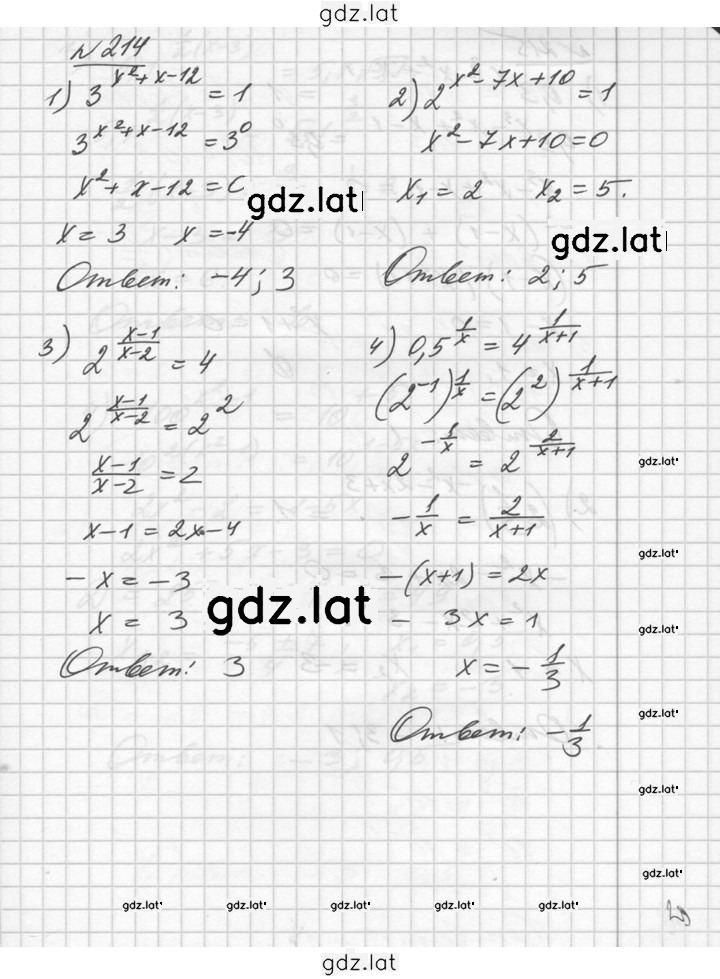 gdz.lat
№ 214
1) 3^(x²+x-12) = 1
3^(x²+x-12) = 3^0
x²+x-12=0
x=3 x=-4
Ответ: -4; 3
2) 2^(x²-7x+10) = 1
x²-7x+10=0
x₁=2 x₂=5.
Ответ: 2; 5
3) 2^((x-1)/(x-2)) = 4
2^((x-1)/(x-2)) = 2²
(x-1)/(x-2) = 2
x-1=2x-4
-x=-3
x=3
Ответ: 3
4) 0,5^(1/x) = 4^(1/(x+1))
(2^(-1))^(1/x) = (2²)^(1/(x+1))
2^(-1/x) = 2^(2/(x+1))
-1/x = 2/(x+1)
-(x+1)=2x
- 3x=1
x=-1/3
Ответ: -1/3
gdz.lat
gdz.lat
gdz.lat
gdz.lat
gdz.lat
gdz.lat
gdz.lat
gdz.lat
gdz.lat
gdz.lat
gdz.lat gdz.lat gdz.lat gdz.lat gdz.lat
gdz.lat